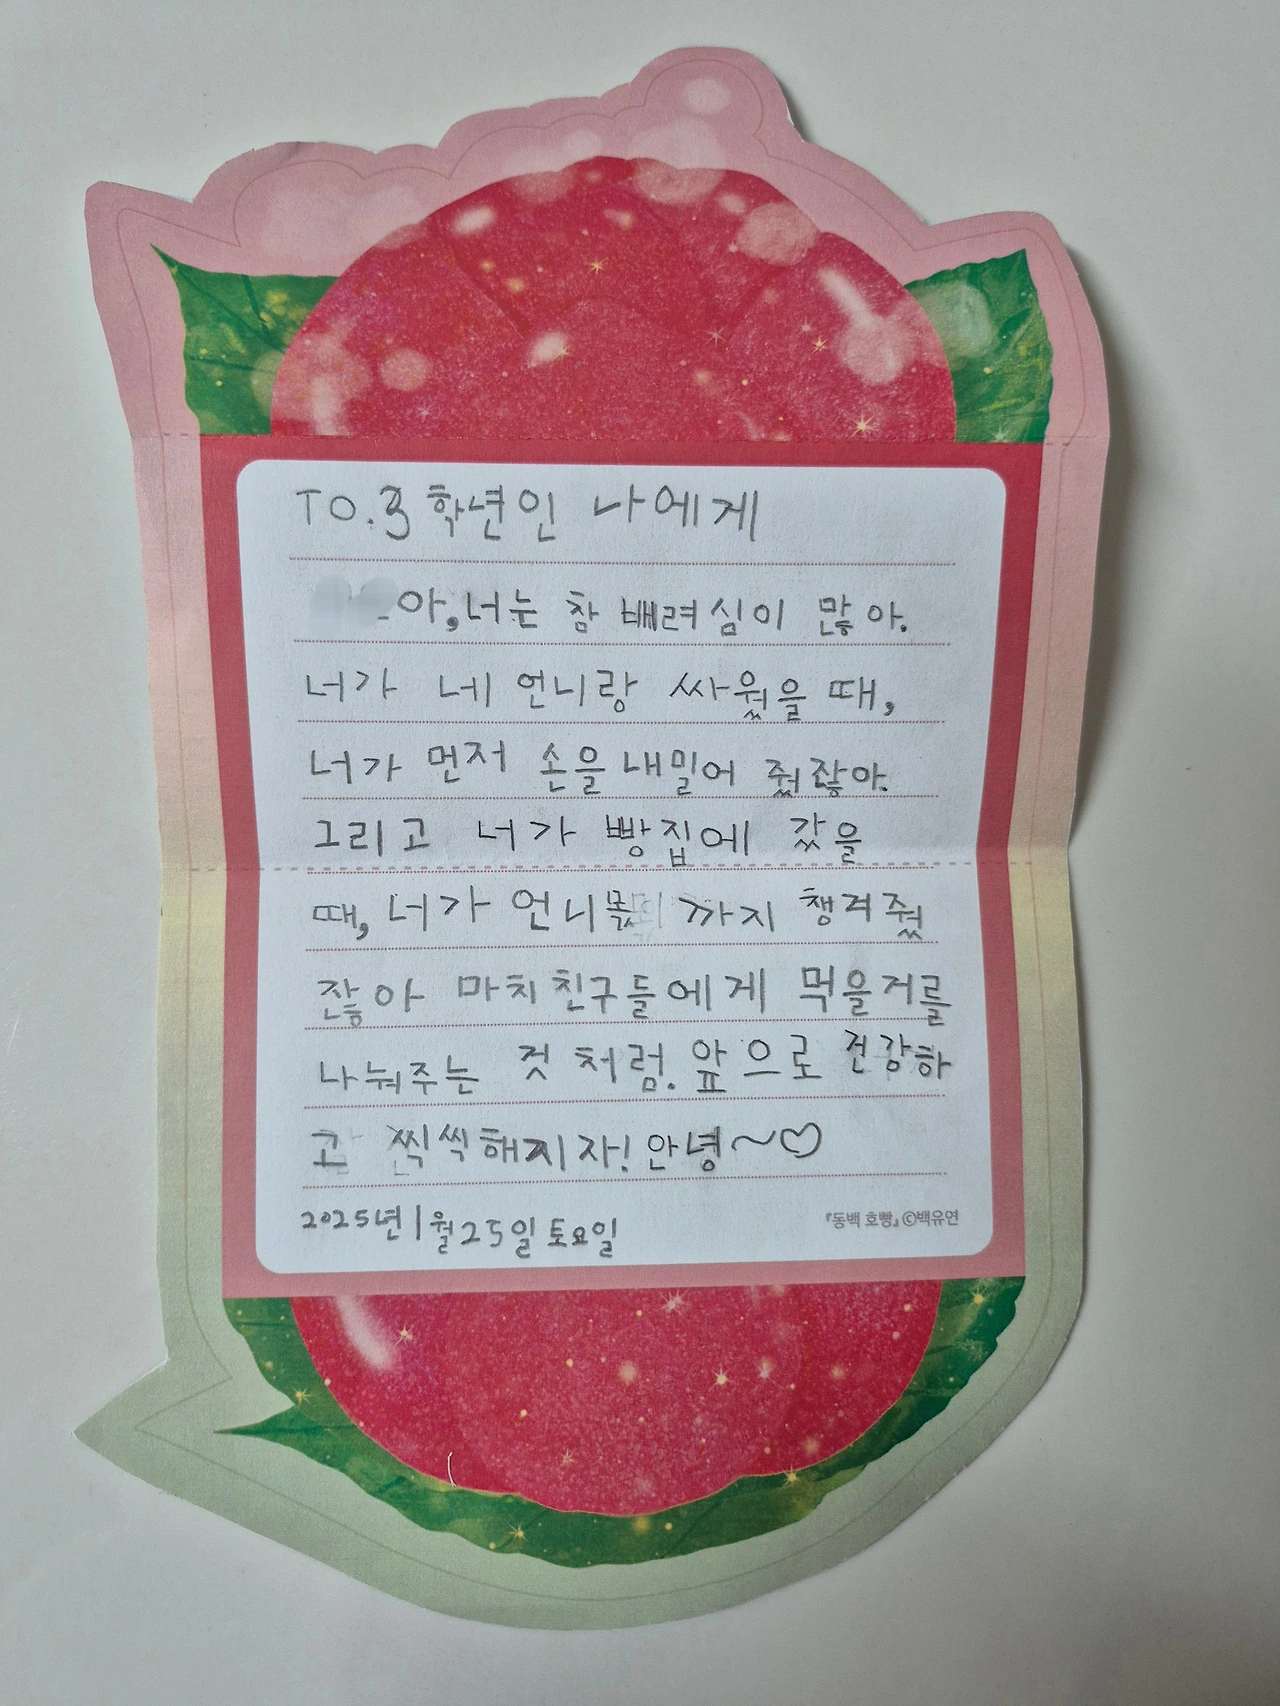 TO.3학년인 나에게
아, 너는 참 배려심이 많아.
너가 네 언니랑 싸웠을 때,
너가 먼저 손을 내밀어 줬잖아.
그리고 너가 빵집에 갔을
때, 너가 언니몫까지 챙겨줬
잖아 마치 친구들에게 먹을거를
나눠주는 것 처럼. 앞으로 건강하
고 씩씩해지자! 안녕~♡
2025년 1월 25일 토요일
『동백 호빵』 ©백유연